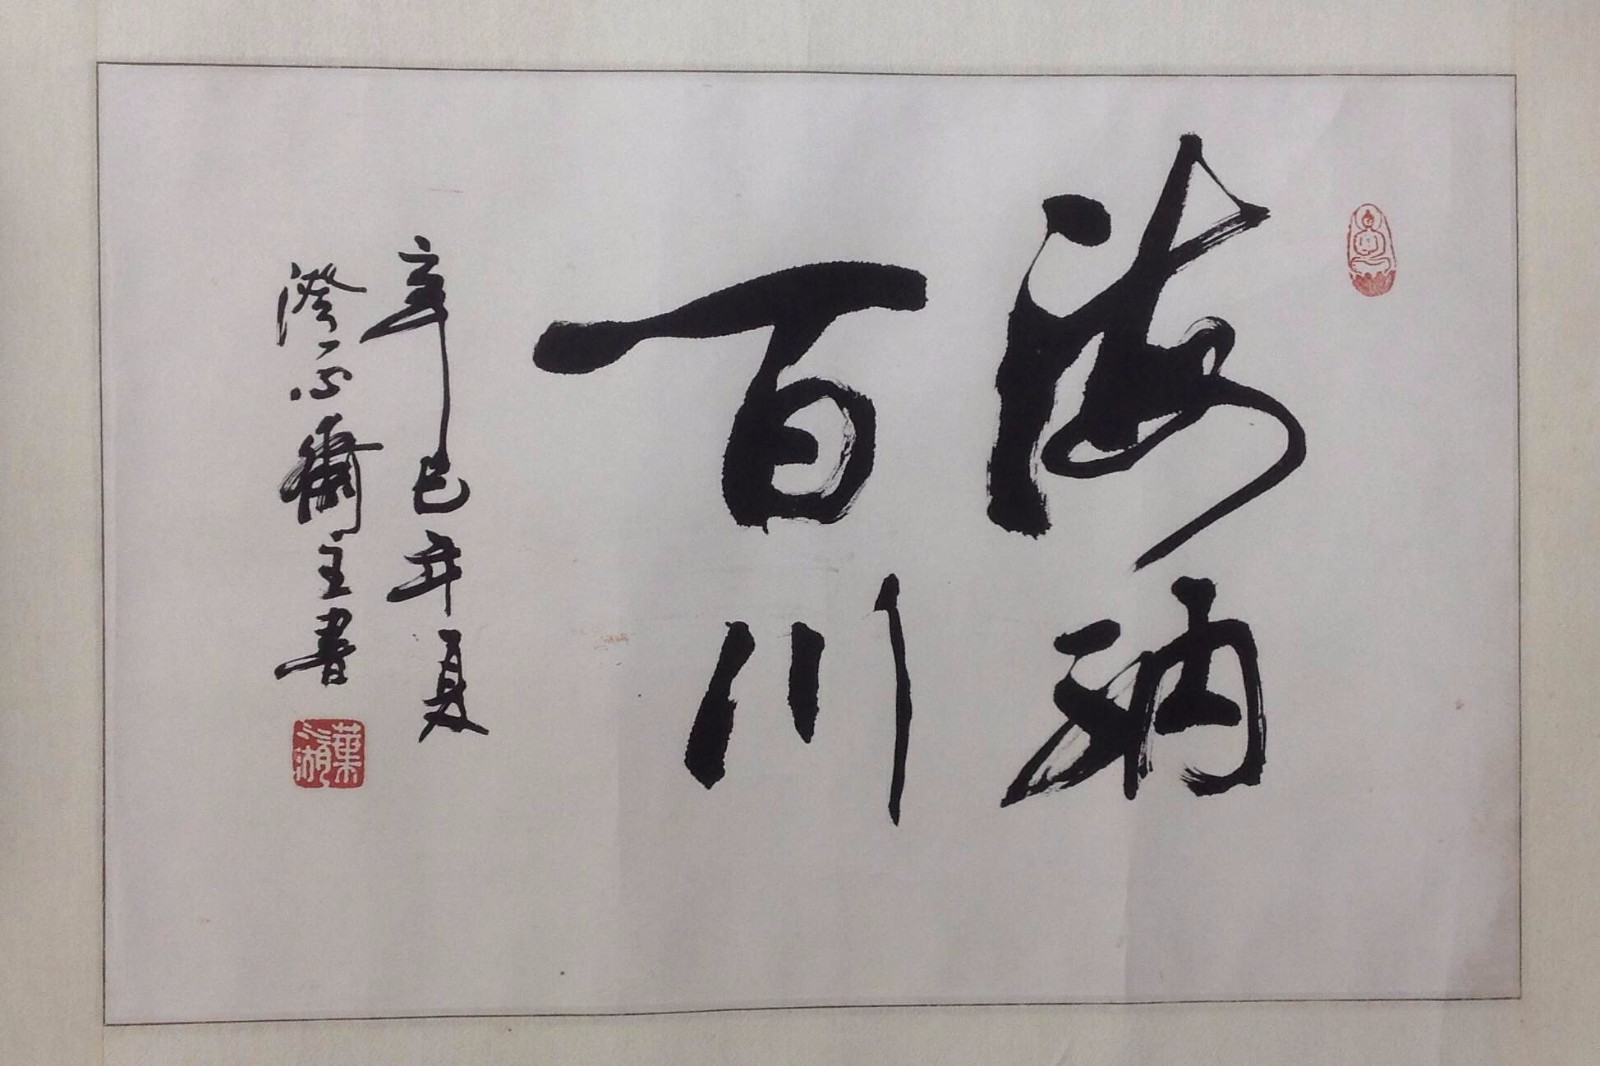 海納
百川
辛巳年夏
澄心齋主書